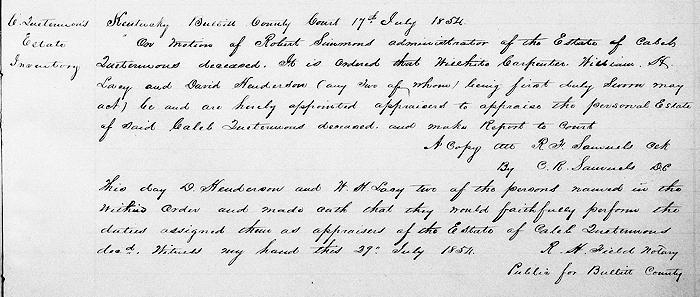 C. Quetermous
Estate
Inventory
Kentucky Bullitt County Court 17th July 1854.
"On motion of Robert Simmons administrator of the Estate of Caleb
Quetermous deceased. It is ordered that Carpenter William. H.
Lacey and David Henderson (any two of whom being first duly sworn may
act) be and are hereby appointed appraisers to appraise the personal Estate
of said Caleb Quetermous deceased. and make Report to Court
A Copy att R. F. Samuels Clk
By C. R. Samuels D.C
This day D. Henderson and W. H Lacy two of the persons named in the
within order and made oath that they would faithfully perform the
duties assigned them as appraisers of the Estate of Caleb Quetermous
decd. Witness my hand this 29th July 1854.
R. H. Field Notary
Public for Bullitt County